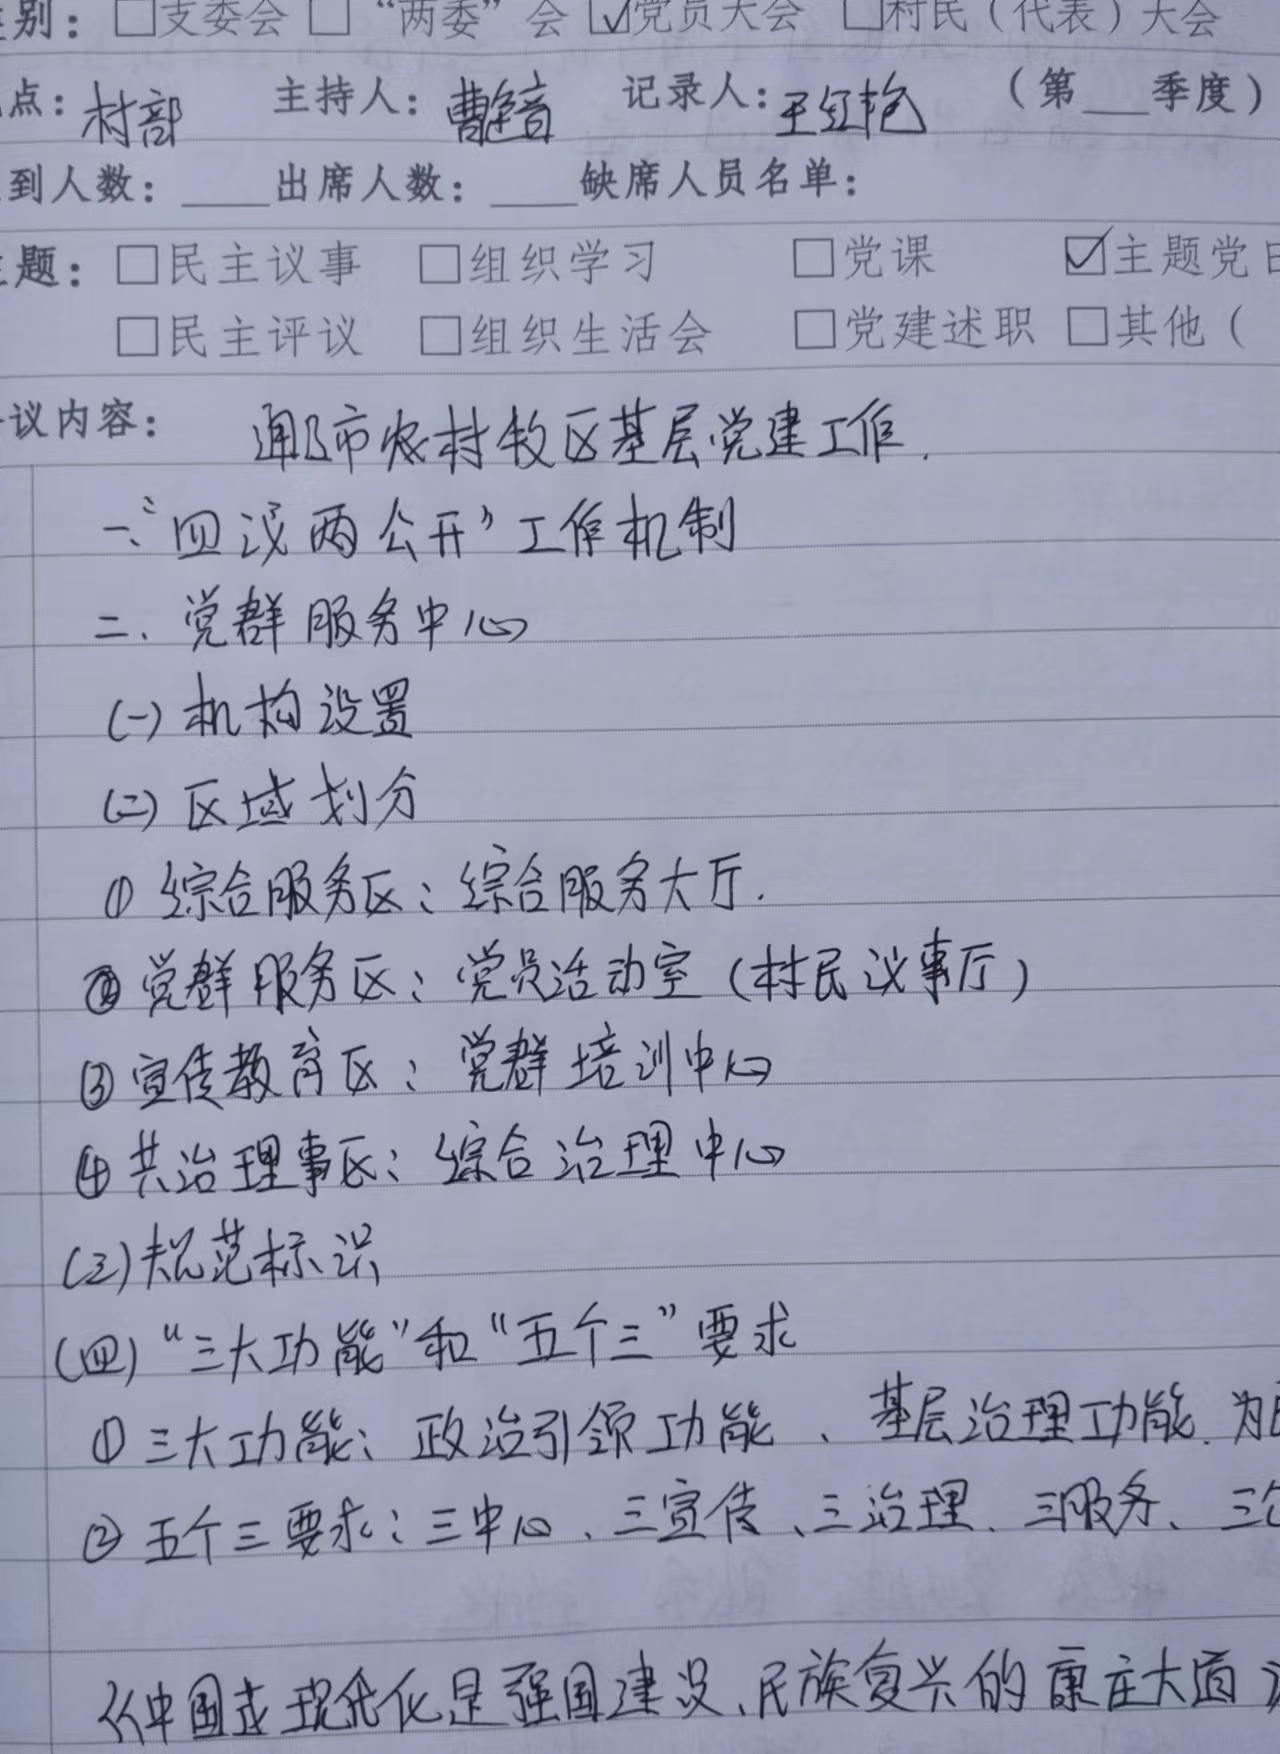 别：□支委会 □“两委”会 ☑党员大会 □村民（代表）大会
点：村部 主持人： 记录人：王红艳 （第___季度）
到人数：____出席人数：____缺席人员名单：
题：□民主议事 □组织学习 □党课 ☑主题党日
□民主评议 □组织生活会 □党建述职 □其他（
议内容： 通辽市农村牧区基层党建工作.
一、“四议两公开”工作机制
二、党群服务中心
(一) 机构设置
(二) 区域划分
① 综合服务区：综合服务大厅.
② 党群服务区：党员活动室（村民议事厅）
③ 宣传教育区：党群培训中心
④ 共治理事区：综合治理中心
(三) 规范标识
(四) “三大功能”和“五个三”要求
① 三大功能：政治引领功能、基层治理功能、为
② 五个三要求：三中心、三宣传、三治理、三服务、三
《中国式现代化是强国建设、民族复兴的康庄大道》